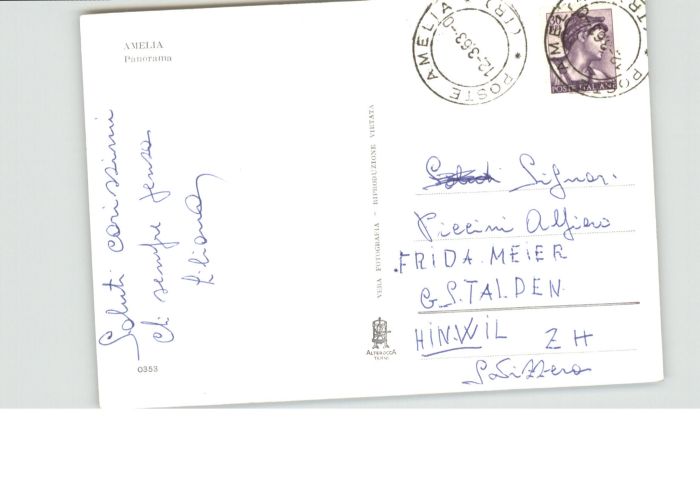 AMELIA
Panorama
Saluti carissimi
di sempre penso
Liliana
0353
VERA FOTOGRAFIA - RIPRODUZIONE VIETATA
ALTEROCCA
TERNI
POSTE AMELIA (TR)
12-3-63-0
POSTE ITALIANE
Signor.
Piccini Alfiero
FRIDA. MEIER
G.S.TALDEN.
HINWIL ZH
Svizzera